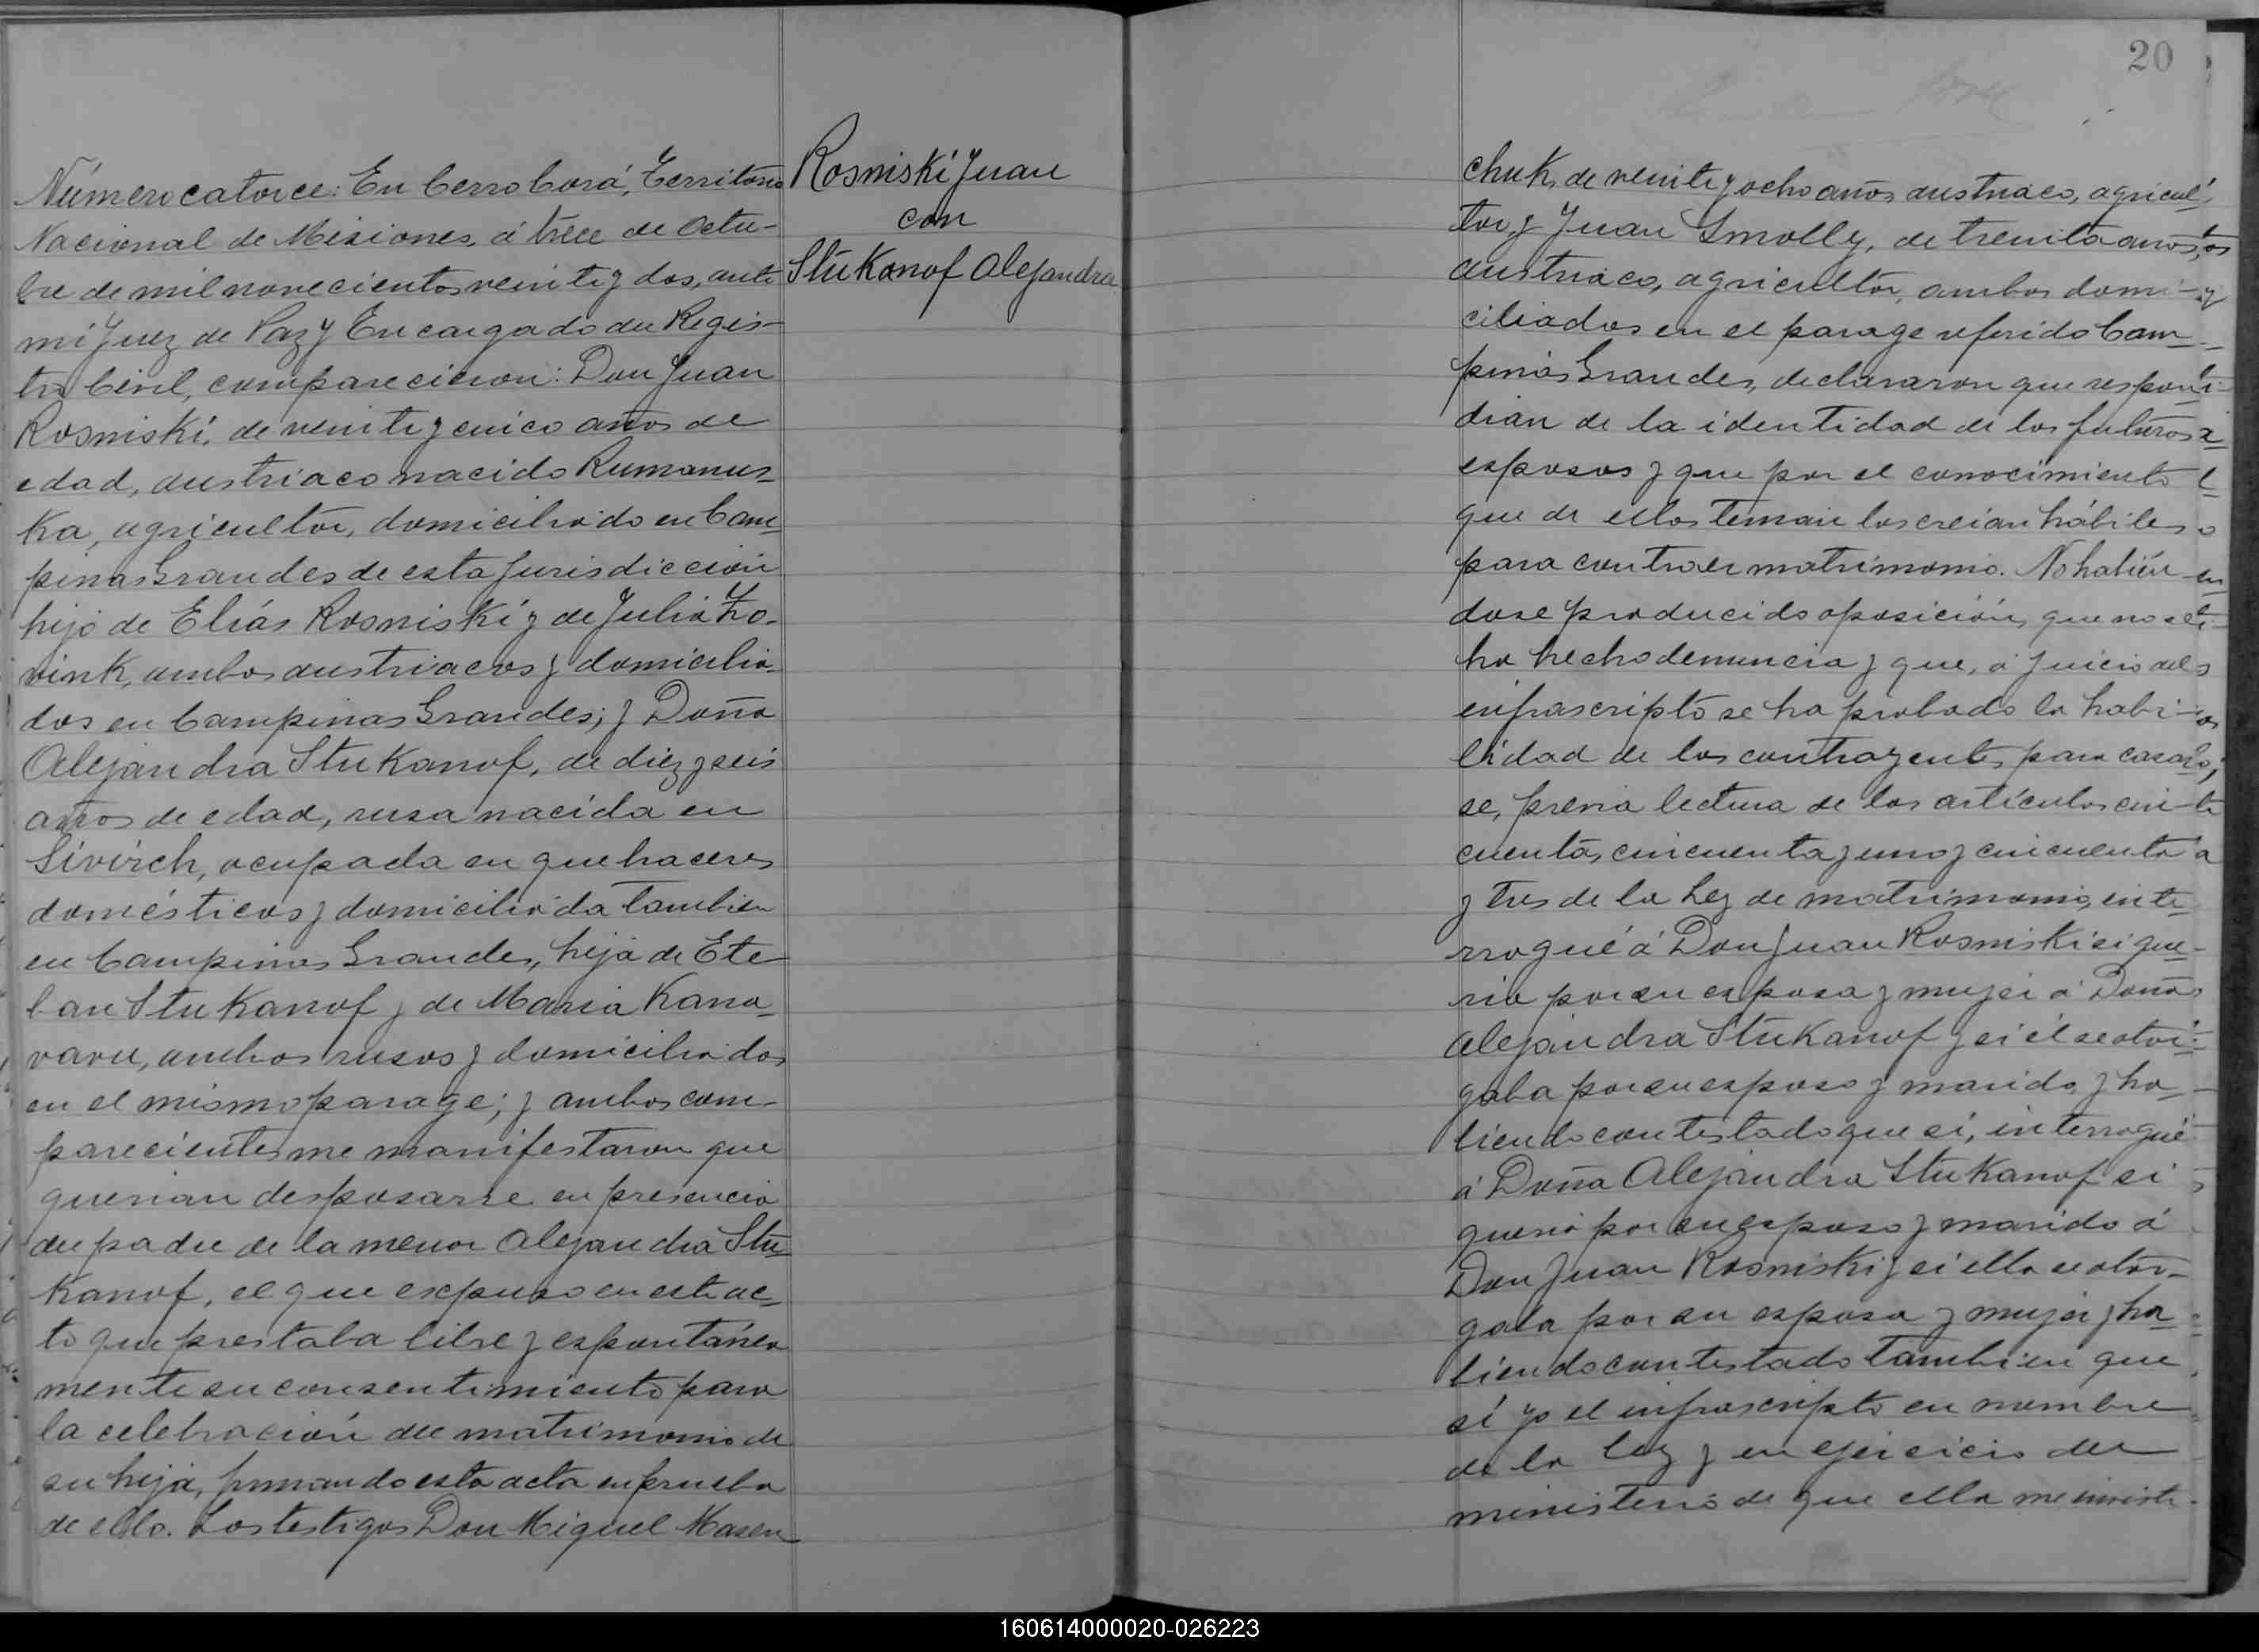 Número catorce: En Cerro Corá, Territorio
Nacional de Misiones, á trece de Octu-
bre de mil novecientos veinte y dos, ante
mi Juez de Paz y Encargado del Regis-
tro Civil, comparecieron: Don Juan
Rosniski, de veinte y cinco años de
edad, austriaco nacido Rumanus-
ka, agricultor, domiciliado en Cam-
pinas Grandes de esta jurisdicción
hijo de Elías Rosniski y de Julia Zo-
vink, ambos austriacos y domicilia-
dos en Campinas Grandes; y Doña
Alejandra Stukanof, de diez y seis
años de edad, rusa nacida en
Sivirch, ocupada en quehaceres
domésticos y domiciliada tambien
en Campinas Grandes, hija de Ete-
ban Stukanof y de Maria Kana-
varu, ambos rusos y domiciliados
en el mismo parage; y ambos com-
parecientes me manifestaron que
querian desposarse en presencia
del padre de la menor Alejandra Stu-
kanof, el que expuso en este ac-
to que prestaba libre y espontánea
mente su consentimiento para
la celebración del matrimonio de
su hija, firmando esta acta en prueba
de ello. Los testigos Don Miguel Masen
Rosniski Juan
con
Stukanof Alejandra
20
chuk, de veinte y ocho años austriaco, agricul-
tor, y Juan Smolly, de treinta años,
austriaco, agricultor, ambos domi-
ciliados en el parage referido Cam-
pinas Grandes, declararon que respon-
dian de la identidad de los futuros
esposos y que por el conocimiento
que de ellos tenian los creian hábiles
para contraer matrimonio. No habién-
dose producido oposición, que no se
ha hecho denuncia y que, á juicio del
infrascripto se ha probado la habi-
lidad de los contrayentes para casar-
se, previa lectura de los artículos cin-
cuenta, cincuenta y uno y cincuenta
y tres de la Ley de matrimonio, inte-
rrogué á Don Juan Rosniski si que-
ria por su esposa y mujer á Doña
Alejandra Stukanof y si él se otor-
gaba por su esposo y marido, y ha-
biendo contestado que sí, interrogué
á Doña Alejandra Stukanof si
queria por su esposo y marido á
Don Juan Rosniski y si ella se otor-
gaba por su esposa y mujer y ha-
biendo contestado tambien que
sí yo el infrascripto en nombre
de la ley y en ejercicio del
ministerio de que ella me inviste
160614000020-026223